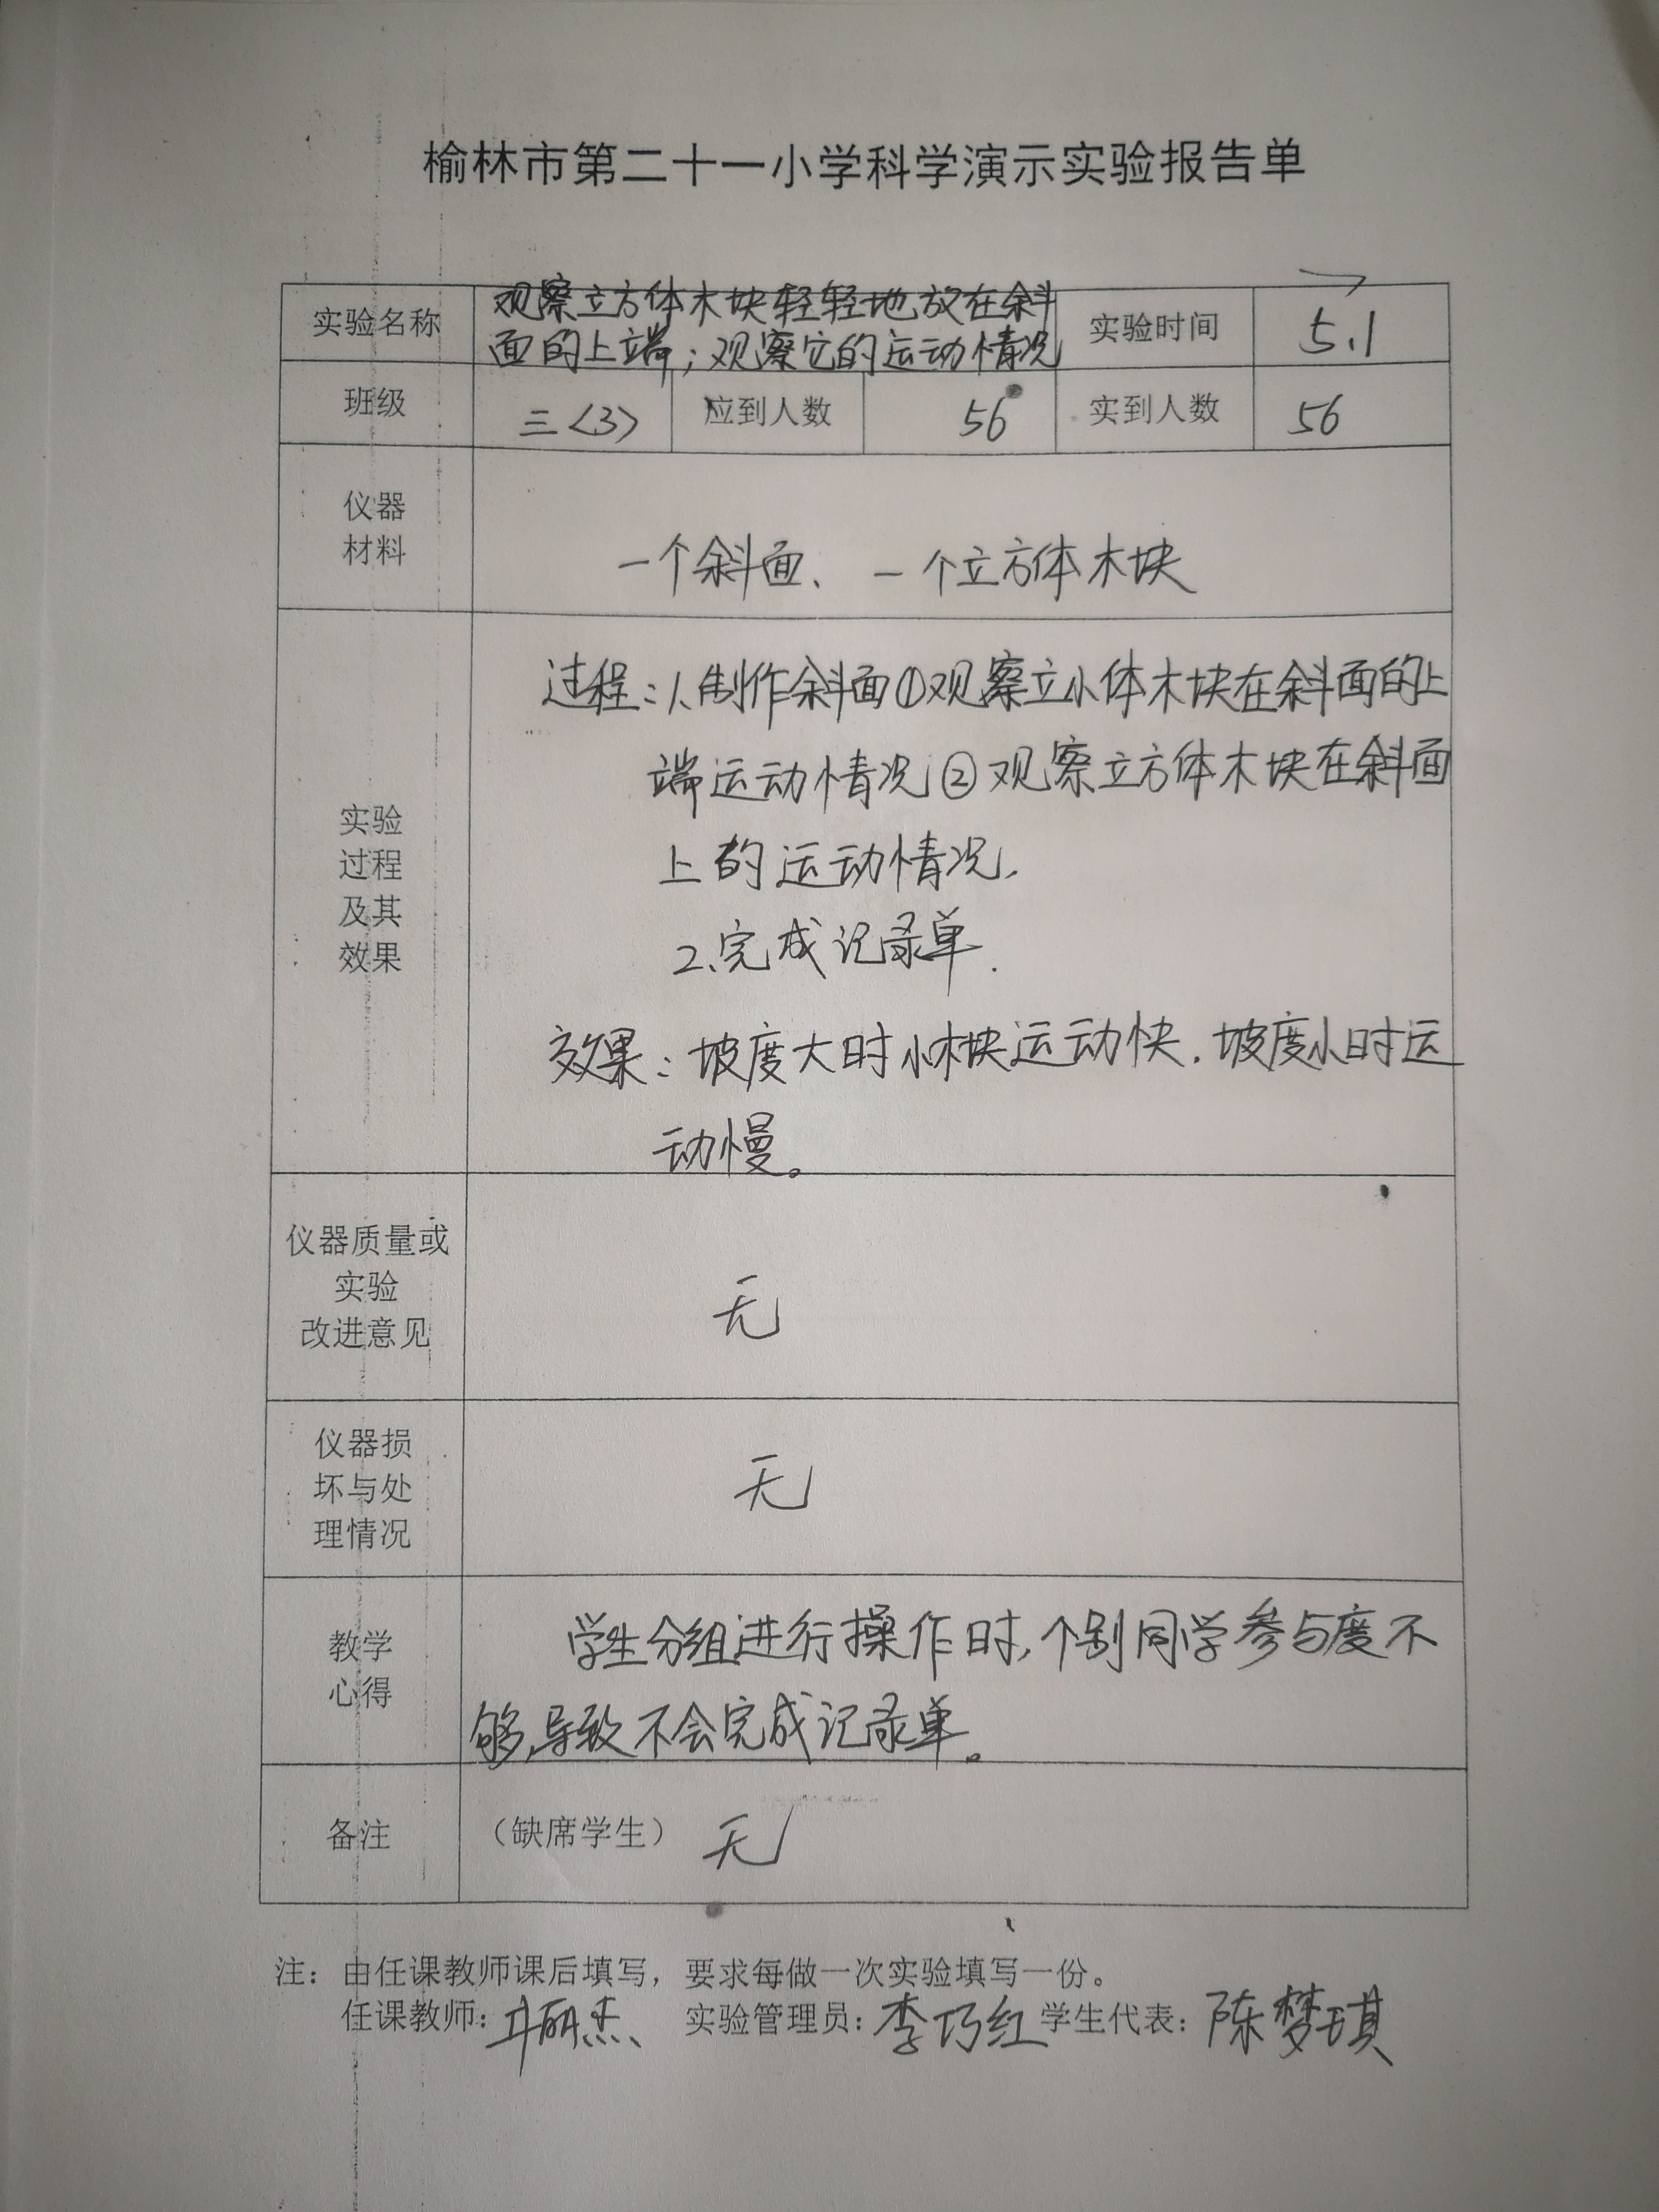 榆林市第二十一小学科学演示实验报告单
实验名称
观察立方体木块轻轻地放在斜
面的上端；观察它的运动情况
实验时间
5.1
班级
三〈3〉
应到人数
56
实到人数
56
仪器
材料
一个斜面、一个立方体木块
实验
过程
及其
效果
过程：1、制作斜面①观察立小体木块在斜面的上
端运动情况②观察立方体木块在斜面
上的运动情况.
2、完成记录单.
效果：坡度大时小木块运动快.坡度小时运
动慢。
仪器质量或
实验
改进意见
无
仪器损
坏与处
理情况
无
教学
心得
学生分组进行操作时,个别同学参与度不
够,导致不会完成记录单。
备注
（缺席学生） 无
注：由任课教师课后填写，要求每做一次实验填写一份。
任课教师: 实验管理员:李巧红 学生代表:陈梦琪